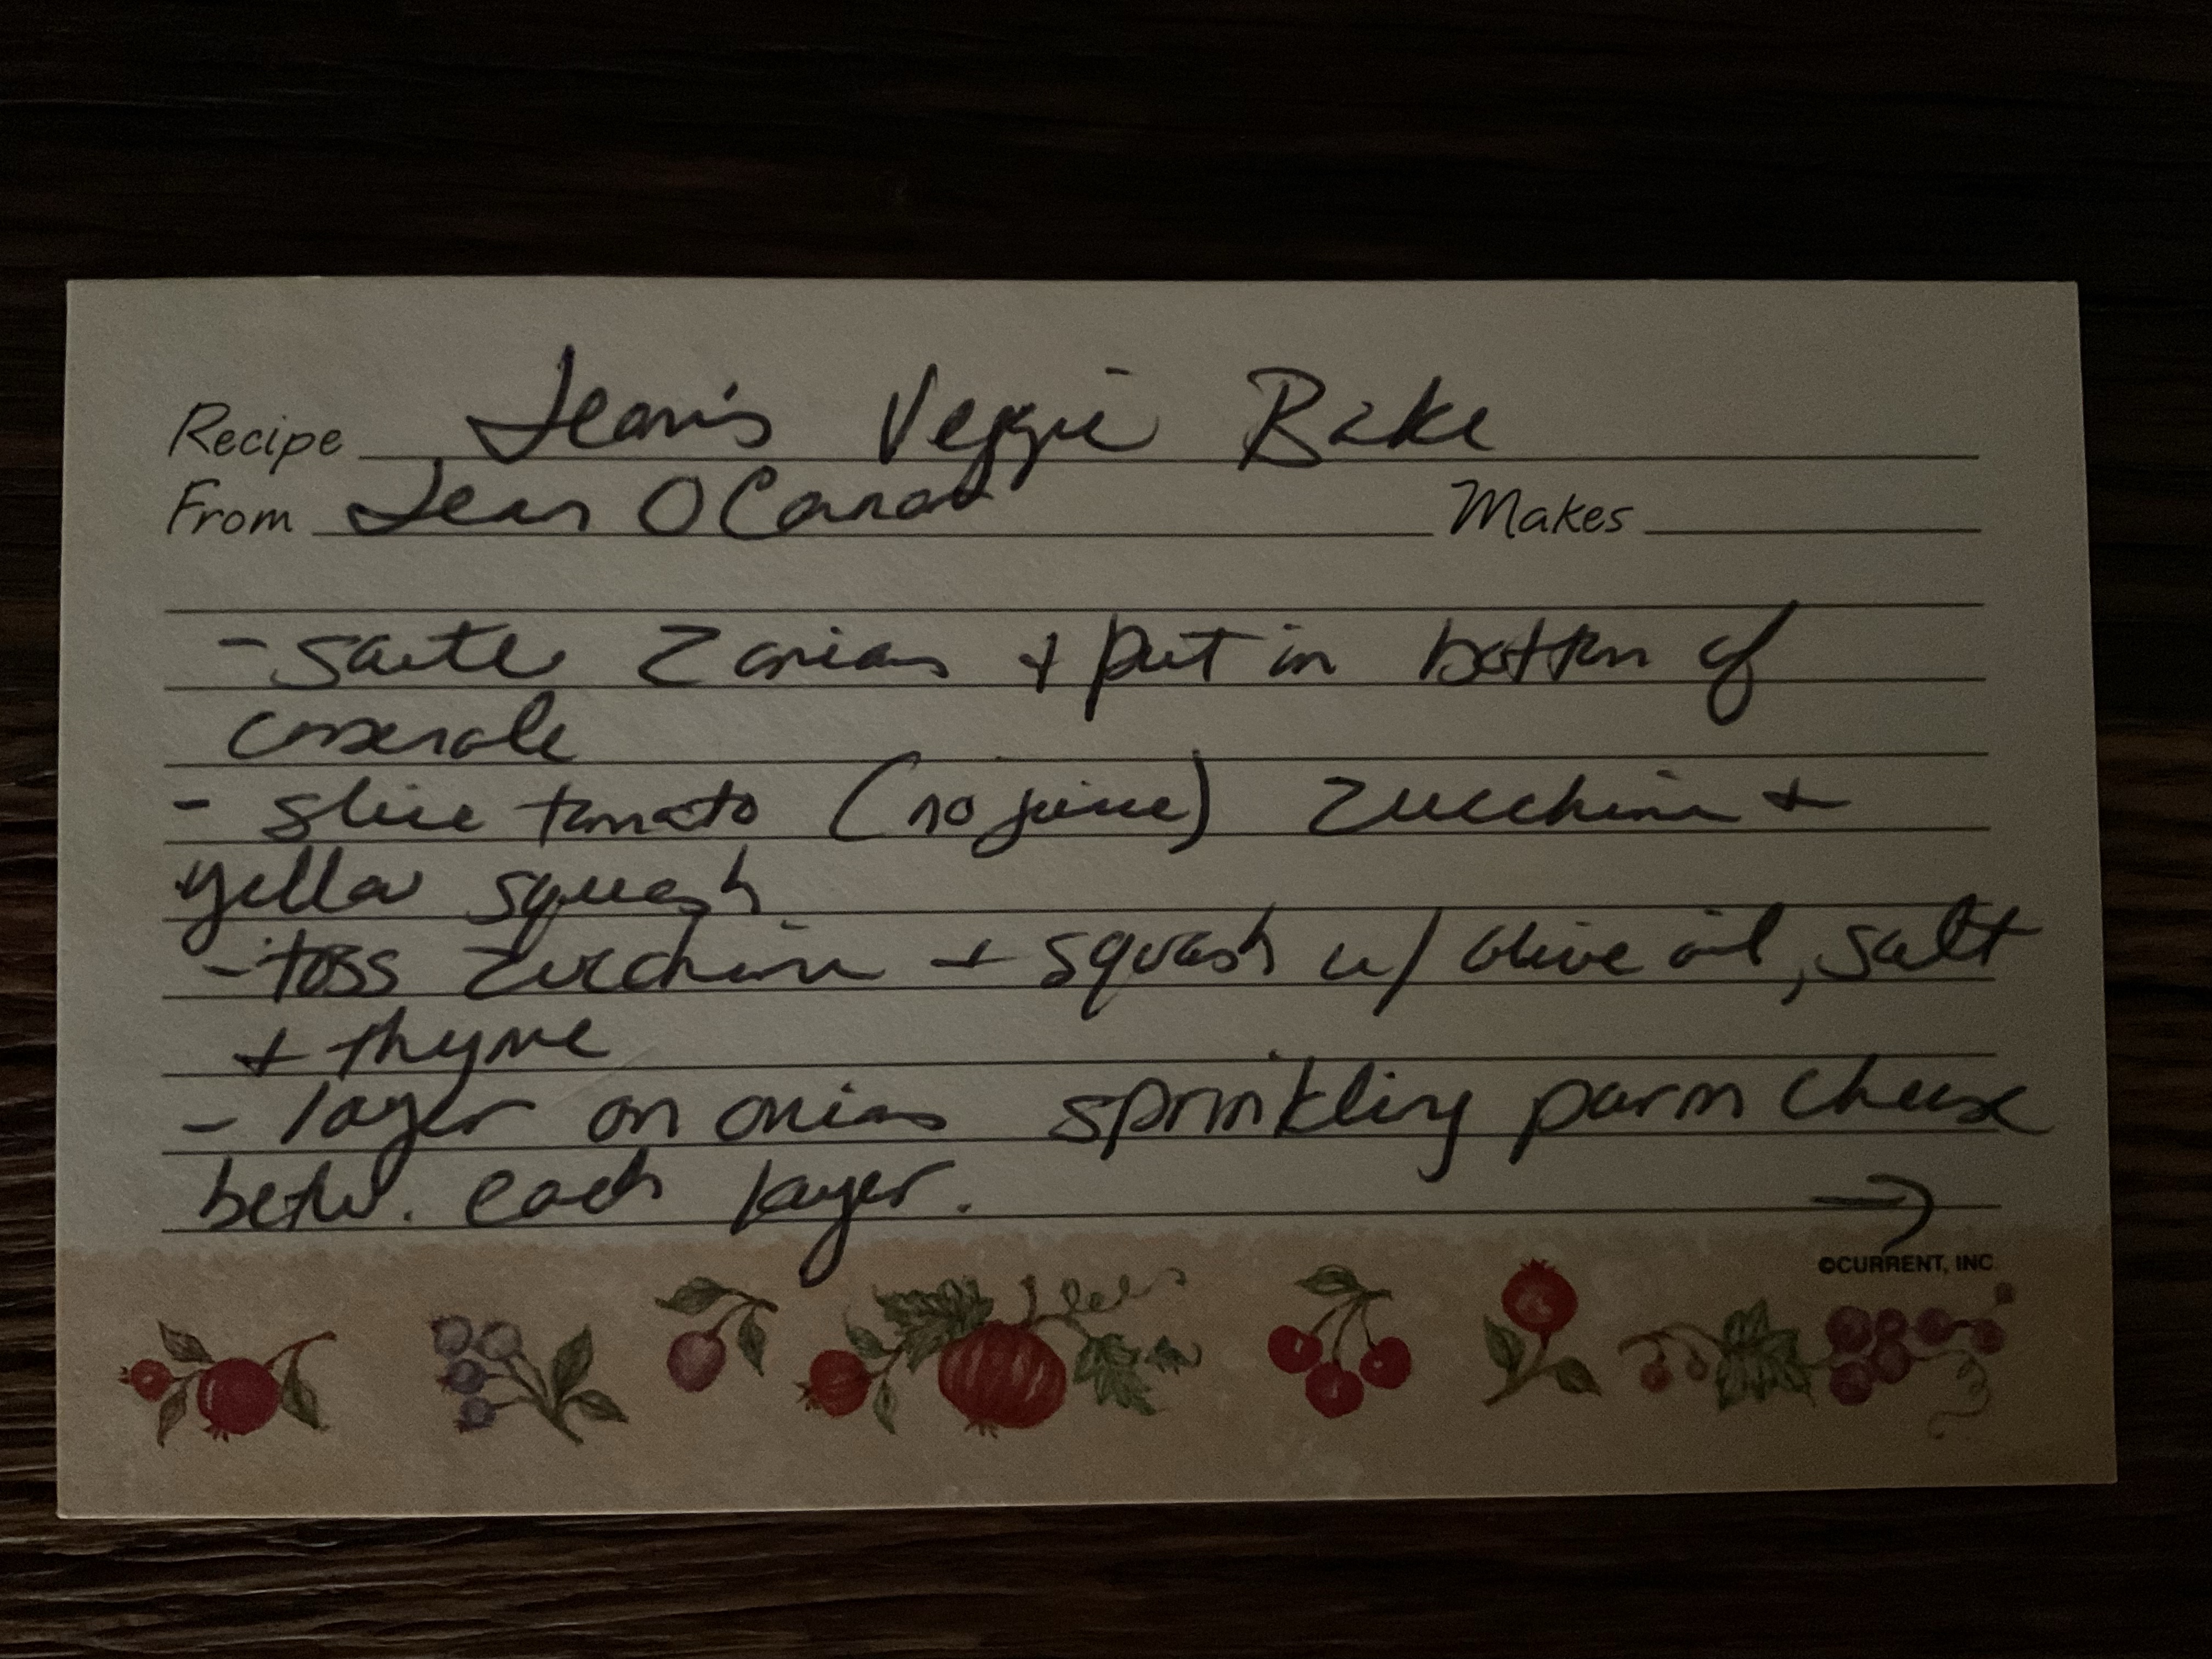 Recipe Jean's Veggie Bake
From Jean O'Connor Makes
- saute 2 onions + put in bottom of
casserole
- slice tomato (no juice) zucchini +
yellow squash
- toss zucchini + squash w/ olive oil, salt
+ thyme
- layer on onions sprinkling parm cheese
betw. each layer.
→
©CURRENT, INC.